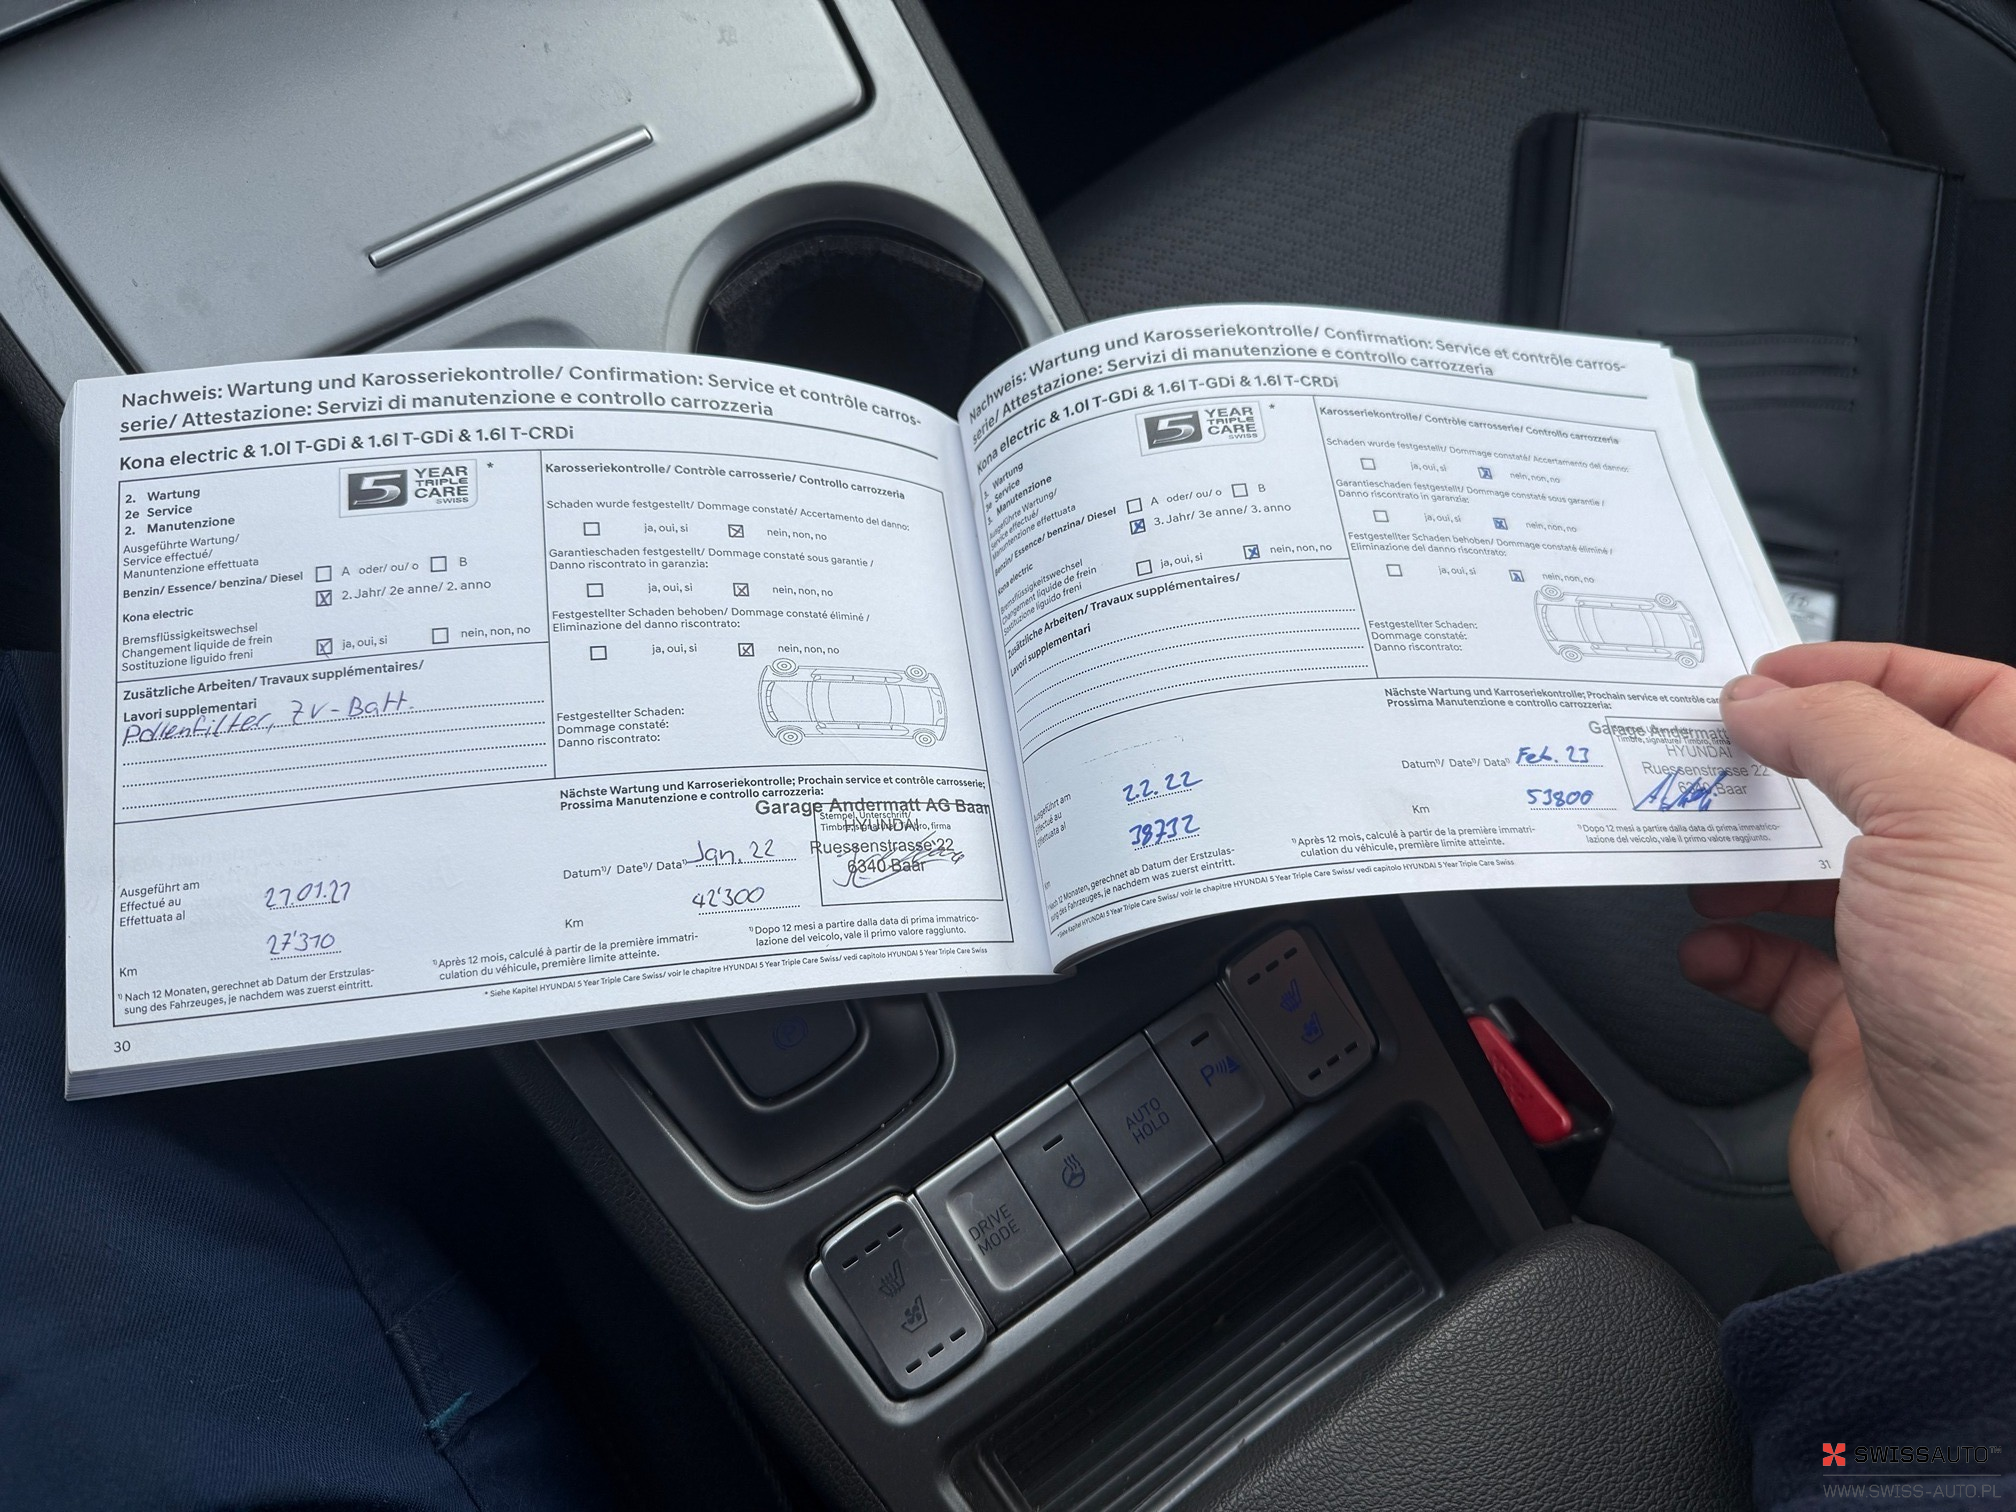 Nachweis: Wartung und Karosseriekontrolle/ Confirmation: Service et contrôle carros-
serie/ Attestazione: Servizi di manutenzione e controllo carrozzeria
Kona electric & 1.0l T-GDi & 1.6l T-GDi & 1.6l T-CRDi
2. Wartung
2e Service
2. Manutenzione
5 YEAR
TRIPLE
CARE
SWISS
*
Ausgeführte Wartung/
Service effectué/
Manutenzione effettuata
Benzin/ Essence/ benzina/ Diesel
A oder/ ou/ o B
Kona electric
2. Jahr/ 2e anne/ 2. anno
Bremsflüssigkeitswechsel
Changement liquide de frein
Sostituzione liguido freni
ja, oui, si
nein, non, no
Zusätzliche Arbeiten/ Travaux supplémentaires/
Lavori supplementari
Pollenfilter, ZV-Batt.
Karosseriekontrolle/ Contrôle carrosserie/ Controllo carrozzeria
Schaden wurde festgestellt/ Dommage constaté/ Accertamento del danno:
ja, oui, si
nein, non, no
Garantieschaden festgestellt/ Dommage constaté sous garantie /
Danno riscontrato in garanzia:
ja, oui, si
nein, non, no
Festgestellter Schaden behoben/ Dommage constaté éliminé /
Eliminazione del danno riscontrato:
ja, oui, si
nein, non, no
Festgestellter Schaden:
Dommage constaté:
Danno riscontrato:
Nächste Wartung und Karroseriekontrolle; Prochain service et contrôle carrosserie;
Prossima Manutenzione e controllo carrozzeria:
Garage Andermatt AG Baar
Stempel, Unterschrift/
HYUNDAI
Ruessenstrasse 22
6340 Baar
Datum¹⁾/ Date¹⁾/ Data¹⁾ Jan. 22
Km 42'300
Ausgeführt am
Effectué au
Effettuata al
27.01.21
Km 27'310
¹⁾ Nach 12 Monaten, gerechnet ab Datum der Erstzulas-
sung des Fahrzeuges, je nachdem was zuerst eintritt.
¹⁾ Après 12 mois, calculé à partir de la première immatri-
culation du véhicule, première limite atteinte.
¹⁾ Dopo 12 mesi a partire dalla data di prima immatrico-
lazione del veicolo, vale il primo valore raggiunto.
* Siehe Kapitel HYUNDAI 5 Year Triple Care Swiss/ voir le chapitre HYUNDAI 5 Year Triple Care Swiss/ vedi capitolo HYUNDAI 5 Year Triple Care Swiss
30
Nachweis: Wartung und Karosseriekontrolle/ Confirmation: Service et contrôle carros-
serie/ Attestazione: Servizi di manutenzione e controllo carrozzeria
Kona electric & 1.0l T-GDi & 1.6l T-GDi & 1.6l T-CRDi
3. Wartung
3e Service
3. Manutenzione
5 YEAR
TRIPLE
CARE
SWISS
*
Ausgeführte Wartung/
Service effectué/
Manutenzione effettuata
Benzin/ Essence/ benzina/ Diesel
A oder/ ou/ o B
Kona electric
3. Jahr/ 3e anne/ 3. anno
Bremsflüssigkeitswechsel
Changement liquide de frein
Sostituzione liguido freni
ja, oui, si
nein, non, no
Zusätzliche Arbeiten/ Travaux supplémentaires/
Lavori supplementari
Karosseriekontrolle/ Contrôle carrosserie/ Controllo carrozzeria
Schaden wurde festgestellt/ Dommage constaté/ Accertamento del danno:
ja, oui, si
nein, non, no
Garantieschaden festgestellt/ Dommage constaté sous garantie /
Danno riscontrato in garanzia:
ja, oui, si
nein, non, no
Festgestellter Schaden behoben/ Dommage constaté éliminé /
Eliminazione del danno riscontrato:
ja, oui, si
nein, non, no
Festgestellter Schaden:
Dommage constaté:
Danno riscontrato:
Nächste Wartung und Karroseriekontrolle; Prochain service et contrôle
Prossima Manutenzione e controllo carrozzeria:
Garage Andermatt
HYUNDAI
Ruessenstrasse 22
6340 Baar
Datum¹⁾/ Date¹⁾/ Data¹⁾ Feb. 23
Km 53800
Ausgeführt am
Effectué au
Effettuata al
2.2.22
Km 38732
¹⁾ Nach 12 Monaten, gerechnet ab Datum der Erstzulas-
sung des Fahrzeuges, je nachdem was zuerst eintritt.
¹⁾ Après 12 mois, calculé à partir de la première immatri-
culation du véhicule, première limite atteinte.
¹⁾ Dopo 12 mesi a partire dalla data di prima immatrico-
lazione del veicolo, vale il primo valore raggiunto.
* Siehe Kapitel HYUNDAI 5 Year Triple Care Swiss/ voir le chapitre HYUNDAI 5 Year Triple Care Swiss/ vedi capitolo HYUNDAI 5 Year Triple Care Swiss
31
DRIVE
MODE
AUTO
HOLD
P
SWISSAUTO™
WWW.SWISS-AUTO.PL